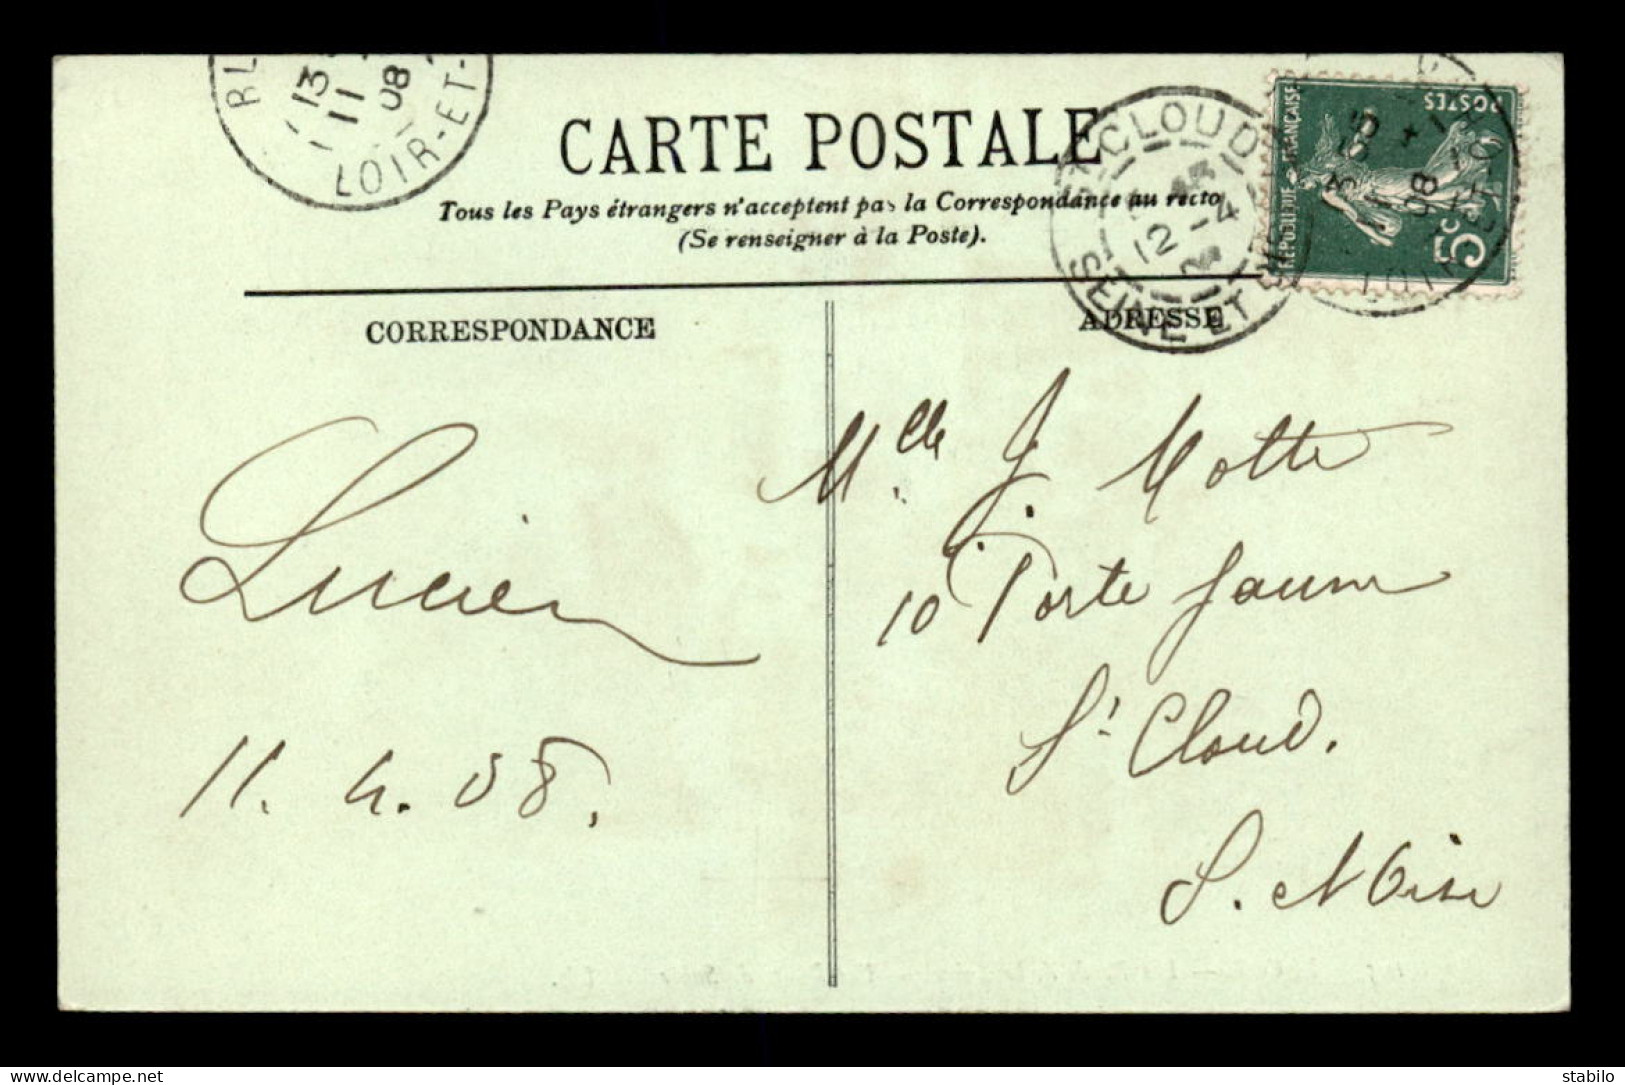 BL
13
11
08
LOIR-ET-
CARTE POSTALE
Tous les Pays étrangers n'acceptent pas la Correspondance au recto
(Se renseigner à la Poste).
ST CLOUD
12 -4
SEINE ET OISE
POSTES
REPUBLIQUE FRANÇAISE
5c
08
CORRESPONDANCE
ADRESSE
Lucien
11. 4. 08.
Mlle J. Motte
10 Porte Jaune
St Cloud.
S. et Oise
delcampe.net
stabilo